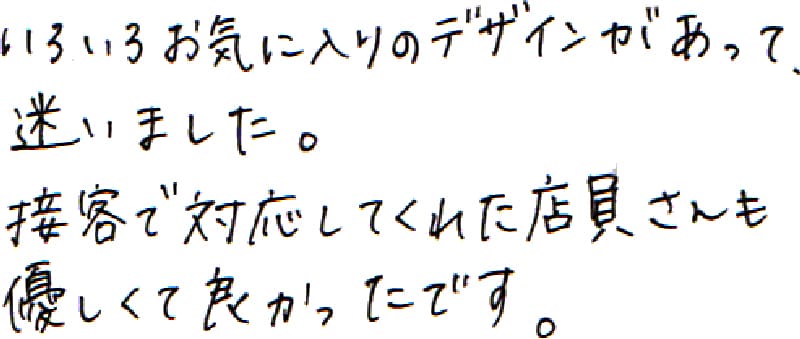 いろいろお気に入りのデザインがあって、
迷いました。
接客で対応してくれた店員さんも
優しくて良かったです。